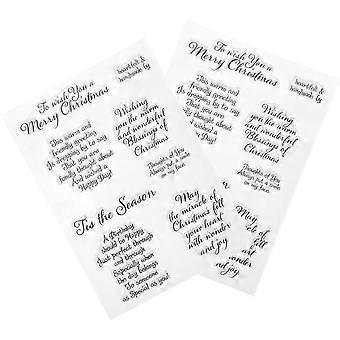 To wish You a
Merry Christmas
heartfelt &
handmade by
This warm and
friendly greeting
Is dropping by to say
That you are
fondly thought about
And wished a
Happy Day!
Wishing
you the warm
and wonderful
Blessings of
Christmas
Thoughts of You
Always put a smile
on my face.
'Tis the Season
A Birthday
should be Happy
Just perfect through
and through
Especially when
the day belongs
To someone
as Special as you!
May
the miracle of
Christmas fill
your heart
with wonder
and joy
To wish You a
Merry Christmas
heartfelt &
handmade by
This warm and
friendly greeting
Is dropping by to say
That you are
fondly thought about
And wished a
Happy Day!
Wishing
you the warm
and wonderful
Blessings of
Christmas
Thoughts of You
Always put a smile
on my face.
May
of
fill
art
wonder
and joy